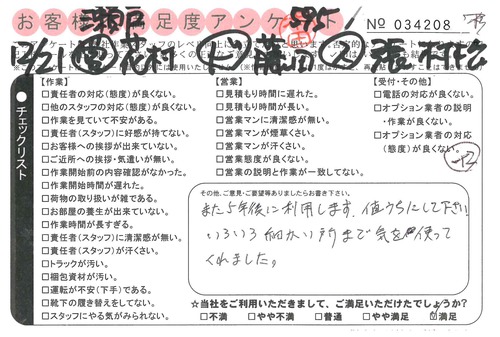 お客様満足度アンケート
No 034208
【作業】
□責任者の対応(態度)が良くない。
□他のスタッフの対応(態度)が良くない。
□作業を見ていて不安がある。
□責任者(スタッフ)に好感が持てない。
□お客様への挨拶が出来ていない。
□ご近所への挨拶・気遣いが無い。
□作業開始前の内容確認がなかった。
□作業開始時間が遅れた。
□荷物の取り扱いが雑である。
□お部屋の養生が出来ていない。
□作業時間が長すぎる。
□責任者(スタッフ)に清潔感が無い。
□責任者(スタッフ)が汗くさい。
□トラックが汚い。
□梱包資材が汚い。
□運転が不安(下手)である。
□靴下の履き替えをしてない。
□スタッフにやる気がみられない。
【営業】
□見積もり時間に遅れた。
□見積もり時間が長い。
□営業マンに清潔感が無い。
□営業マンが煙草くさい。
□営業マンが汗くさい。
□営業態度が良くない。
□営業の説明と作業が一致してない。
【受付・その他】
□電話の対応が良くない。
□オプション業者の説明
・作業が良くない。
□オプション業者の対応
(態度)が良くない。
チェックリスト
その他、ご意見・ご要望等ありましたらお書き下さい。
また5年後に利用します。値うちにして下さい
いろいろ細かい所まで気を使って
くれました。
☆当社をご利用いただきまして、ご満足いただけたでしょうか?
□不満 □やや不満 □普通 □やや満足 ☑満足